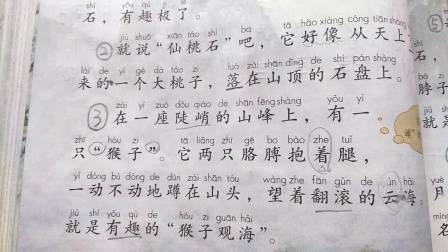 shí yǒu qù
石，有趣极了。
jiù shuō xiān táo shí ba tā hǎo xiàng cóng tiān shàng
②就说“仙桃石”吧，它好像从天上
lái de yí gè dà táo zi luò zài shān dǐng de shí pán shàng
来的一个大桃子，落在山顶的石盘上。
zài yí zuò dǒu qiào de shān fēng shàng yǒu yì
③在一座陡峭的山峰上，有一
zhī hóu zi tā liǎng zhī gē bo bào zhe tuǐ
只“猴子”。它两只胳膊抱着腿，
yí dòng bú dòng de dūn zài shān tóu wàng zhe fān gǔn de yún hǎi
一动不动地蹲在山头，望着翻滚的云海。
jiù shì yǒu qù de hóu zi guān hǎi
就是有趣的“猴子观海”。